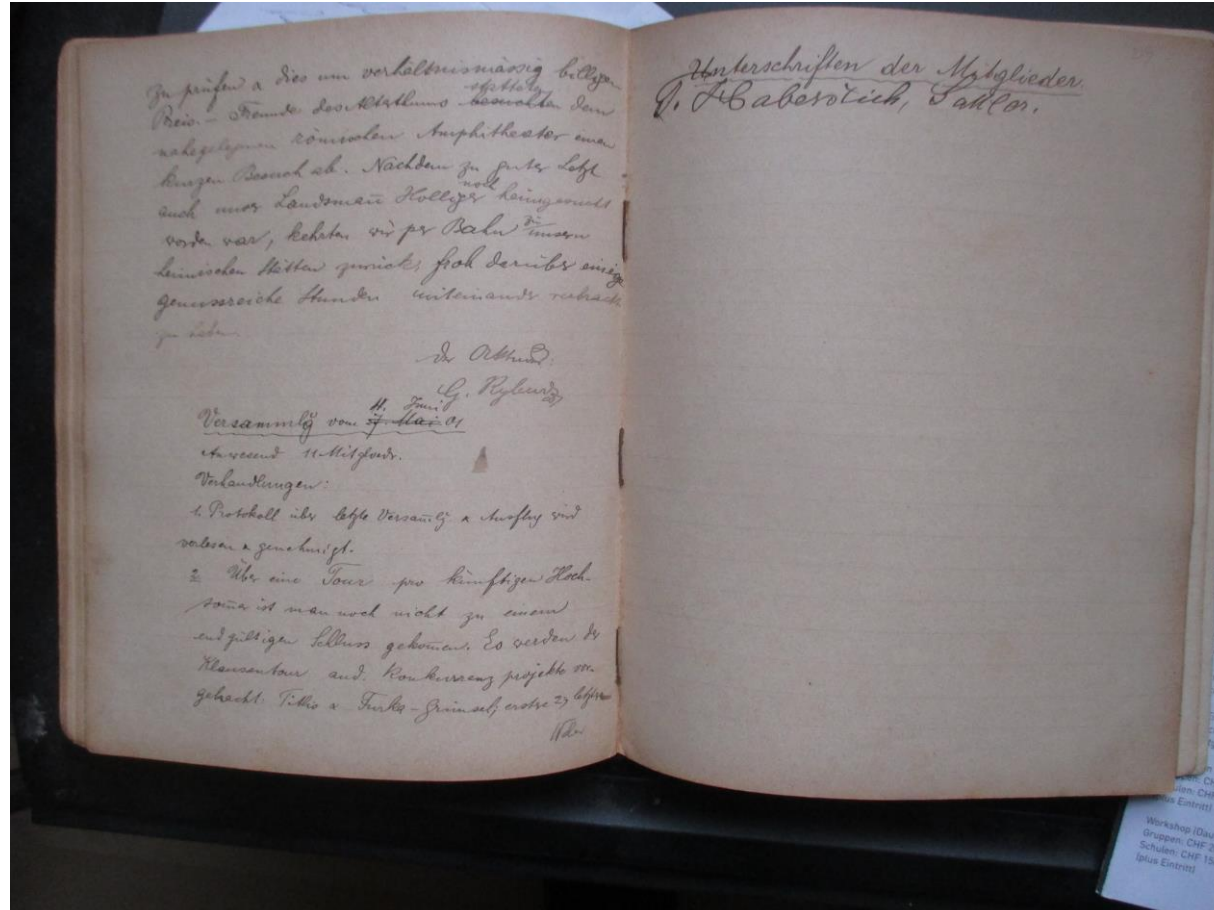 zu prüfen & dies um verhältnismässig billigen
Preis. – Freunde des Altertums statteten besuchten dem
nahegelegenen römischen Amphitheater einen
kurzen Besuch ab. Nachdem zu guter Letzt
auch unser Landsmañ Holliger noch heimgesucht
worden war, kehrten wir per Bahn zu unsern
heimischen Stätten zurück, froh darüber einige
genussreiche Stunden miteinander verbracht
zu haben.
Der Aktuar:
G. Ryburz
Versammlg vom 4. Juni 7. Mai 01
Anwesend 11 Mitglieder.
Verhandlungen:
1. Protokoll über letzte Versam̄lg & Ausflug wird
verlesen & genehmigt.
2. Über eine Tour pro künftigen Hoch-
som̄er ist man noch nicht zu einem
endgültigen Schluss gekom̄en. Es werden der
Klausentour and. Konkurrenzprojekte vor-
gebracht. Titlis & Furka-Grimsel; erstre 2, letztere
Unterschriften der Mitglieder.
J. Haberstich, Sattler.
Workshop (Dau
Gruppen: CHF 2
Schulen: CHF 15
(plus Eintritt)